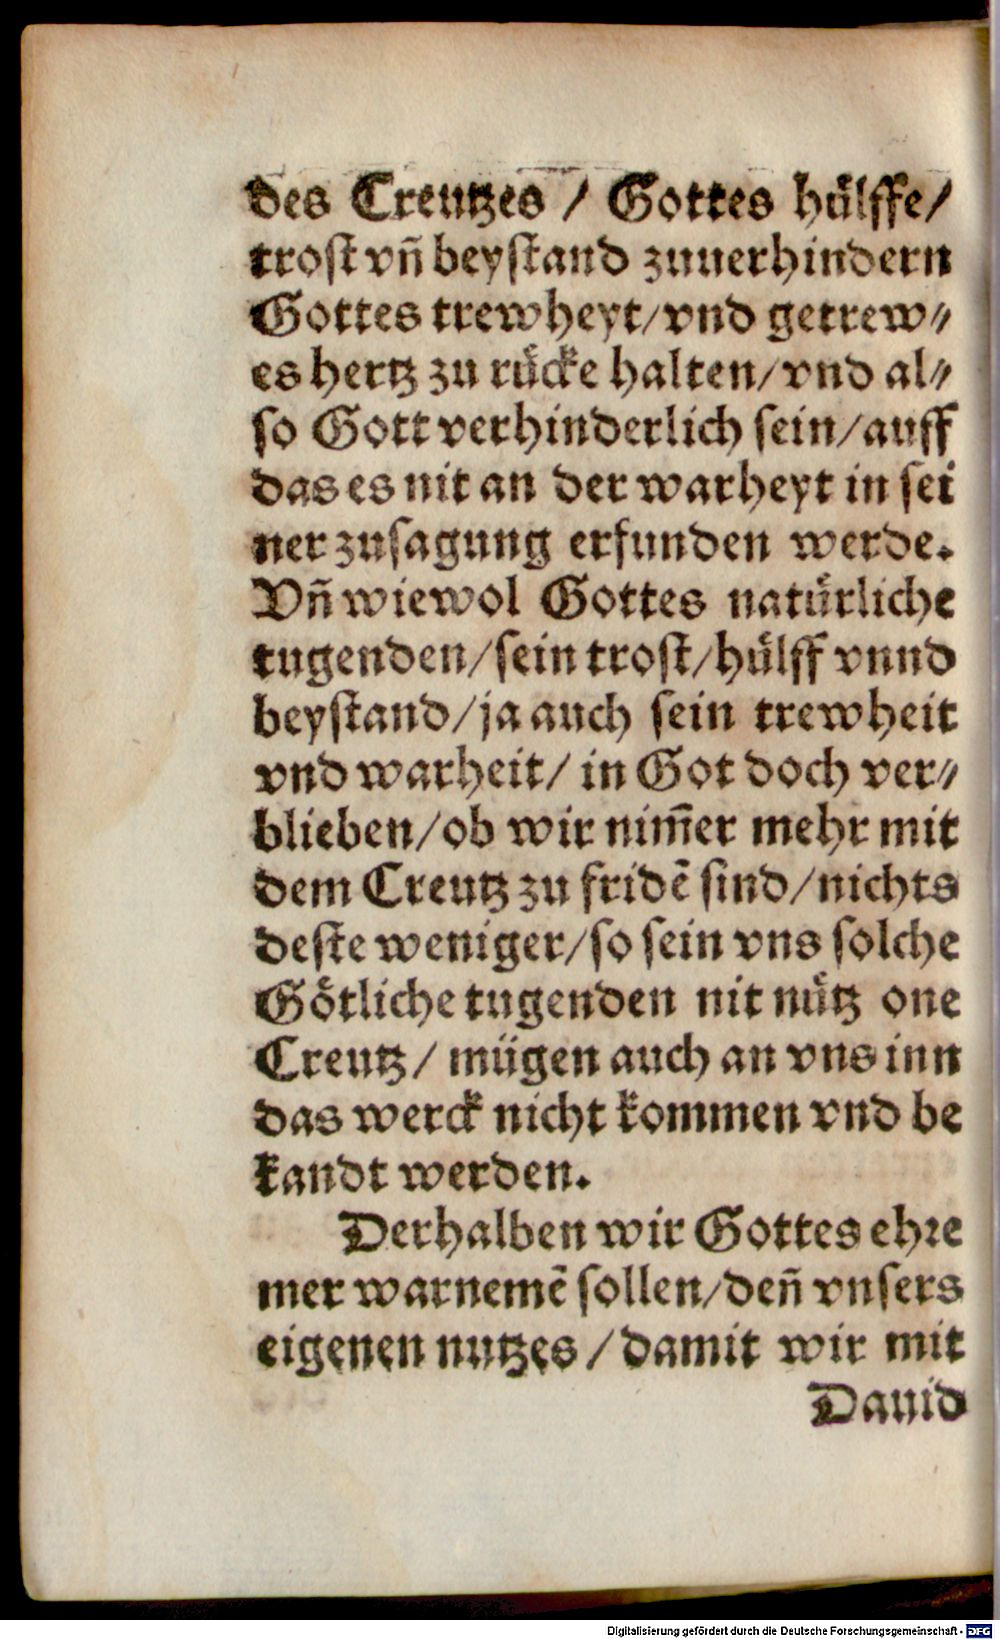 des Creutzes / Gottes huͤlffe/
trost vñ beystand zuuerhindern
Gottes trewheyt/vnd getrew⸗
es hertz zu ruͤcke halten/vnd al⸗
so Gott verhinderlich sein/auff
das es nit an der warheyt in sei
ner zusagung erfunden werde.
Vñ wiewol Gottes natuͤrliche
tugenden/sein trost/huͤlff vnnd
beystand/ja auch sein trewheit
vnd warheit/ in Got doch ver⸗
blieben/ob wir nim̃er mehr mit
dem Creutz zu fridẽ sind/nichts
deste weniger/so sein vns solche
Goͤtliche tugenden nit nuͤtz one
Creutz/ muͤgen auch an vns inn
das werck nicht kommen vnd be
kandt werden.
Derhalben wir Gottes ehre
mer warnemẽ sollen/deñ vnsers
eigenen nutzes / damit wir mit
Dauid
Digitalisierung gefördert durch die Deutsche Forschungsgemeinschaft - DFG